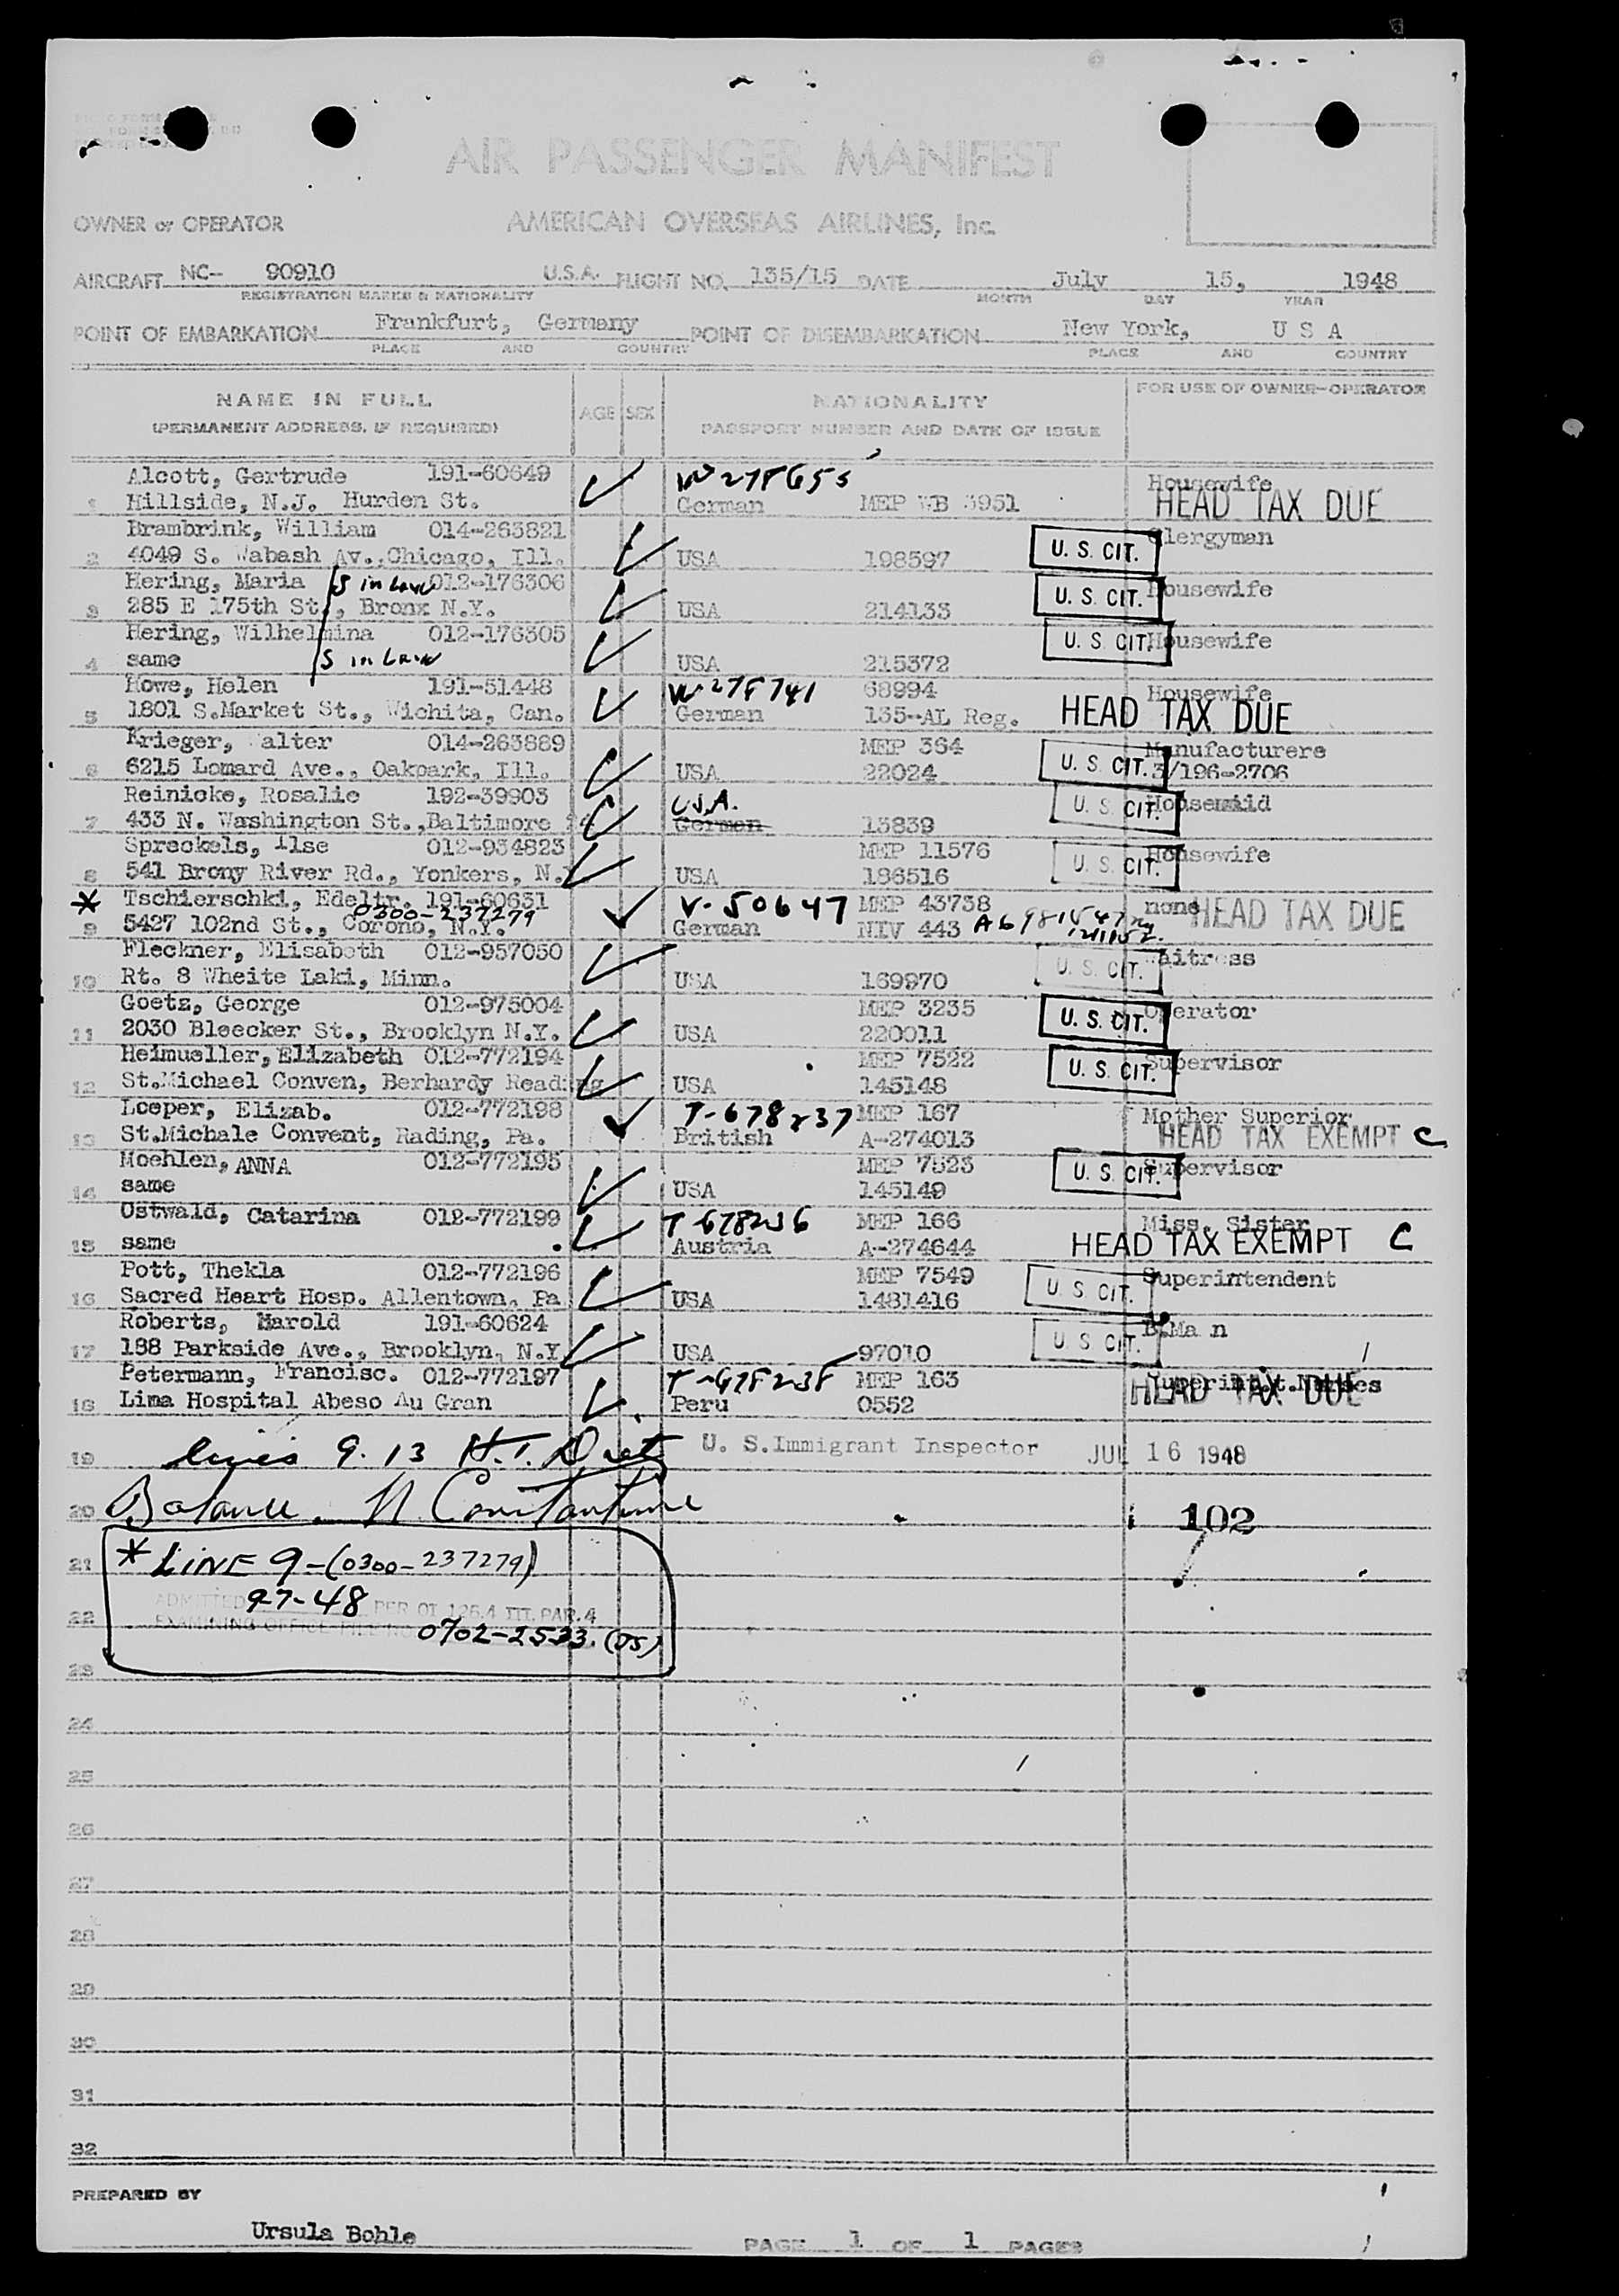 AIR PASSENGER MANIFEST
OWNER or OPERATOR AMERICAN OVERSEAS AIRLINES, Inc.
AIRCRAFT NC- 90910 U.S.A. FLIGHT NO. 135/15 DATE July 15, 1948
REGISTRATION MARKS & NATIONALITY MONTH DAY YEAR
POINT OF EMBARKATION Frankfurt, Germany POINT OF DISEMBARKATION New York, U S A
PLACE AND COUNTRY PLACE AND COUNTRY
NAME IN FULL AGE SEX NATIONALITY FOR USE OF OWNER-OPERATOR
(PERMANENT ADDRESS, IF REQUIRED) PASSPORT NUMBER AND DATE OF ISSUE
Alcott, Gertrude 191-60649 Housewife
1 Hillside, N.J. Hurden St. German MEP WB 3951 HEAD TAX DUE
Brambrink, William 014-263821 Clergyman
2 4049 S. Wabash Av., Chicago, Ill. USA 198597 U. S. CIT.
Hering, Maria S in Law 012-176306 Housewife
3 285 E 175th St., Bronx N.Y. USA 214133 U. S. CIT.
Hering, Wilhelmina 012-176305 U. S. CIT. Housewife
4 same S in Law USA 215372
Howe, Helen 191-51448 W-278741 68994 Housewife
5 1801 S.Market St., Wichita, Can. German 135-AL Reg. HEAD TAX DUE
Krieger, Walter 014-263889 MEP 364 Manufacturers
6 6215 Lomard Ave., Oakpark, Ill. USA 22024 U. S. CIT. 3/196-2706
Reinicke, Rosalie 192-39903 U.S.A. U. S. CIT.
7 433 N. Washington St., Baltimore German 13839
Spreckels, Ilse 012-934823 MEP 11576 Housewife
8 541 Brony River Rd., Yonkers, N. USA 186516 U. S. CIT.
* Tschierschki, Edeltr. 191-60631 V-50647 MEP 43738 none HEAD TAX DUE
0300-237279
9 5427 102nd St., Corono, N.Y. German NIV 443
Fleckner, Elisabeth 012-957050 Waitress
10 Rt. 8 Wheite Laki, Minn. USA 169970 U. S. CIT.
Goetz, George 012-975004 MEP 3235 Operator
11 2030 Bleecker St., Brooklyn N.Y. USA 220011 U. S. CIT.
Heimueller, Elizabeth 012-772194 MEP 7522 Supervisor
12 St.Michael Conven, Berhardy Reading USA 145148 U. S. CIT.
Loeper, Elizab. 012-772198 T-678237 MEP 167 Mother Superior
13 St.Michale Convent, Rading, Pa. British A-274013 HEAD TAX EXEMPT C
Moehlen, ANNA 012-772195 MEP 7523 Supervisor
14 same USA 145149 U. S. CIT.
Ostwald, Catarina 012-772199 T-678236 MEP 166 Miss. Sister
15 same Austria A-274644 HEAD TAX EXEMPT C
Pott, Thekla 012-772196 MEP 7549 Superintendent
16 Sacred Heart Hosp. Allentown, Pa USA 1481416 U. S. CIT.
Roberts, Harold 191-60624 B.Ma n
17 188 Parkside Ave., Brooklyn, N.Y. USA 97010 U. S. CIT.
Petermann, Francisc. 012-772197 T-678238 MEP 163
18 Lima Hospital Abeso Au Gran Peru 0552 HEAD TAX DUE
19 lines 9. 13 U. S. Immigrant Inspector JUL 16 1948
20 Balance N Constantine 102
21 * LINE 9-(0300-237279)
22 ADMITTED 9-7-48 PER OI 126.4 III. PAR.4
0702-2533. (JS)
23
24
25
26
27
28
29
30
31
32
PREPARED BY
Ursula Bohle PAGE 1 OF 1 PAGES